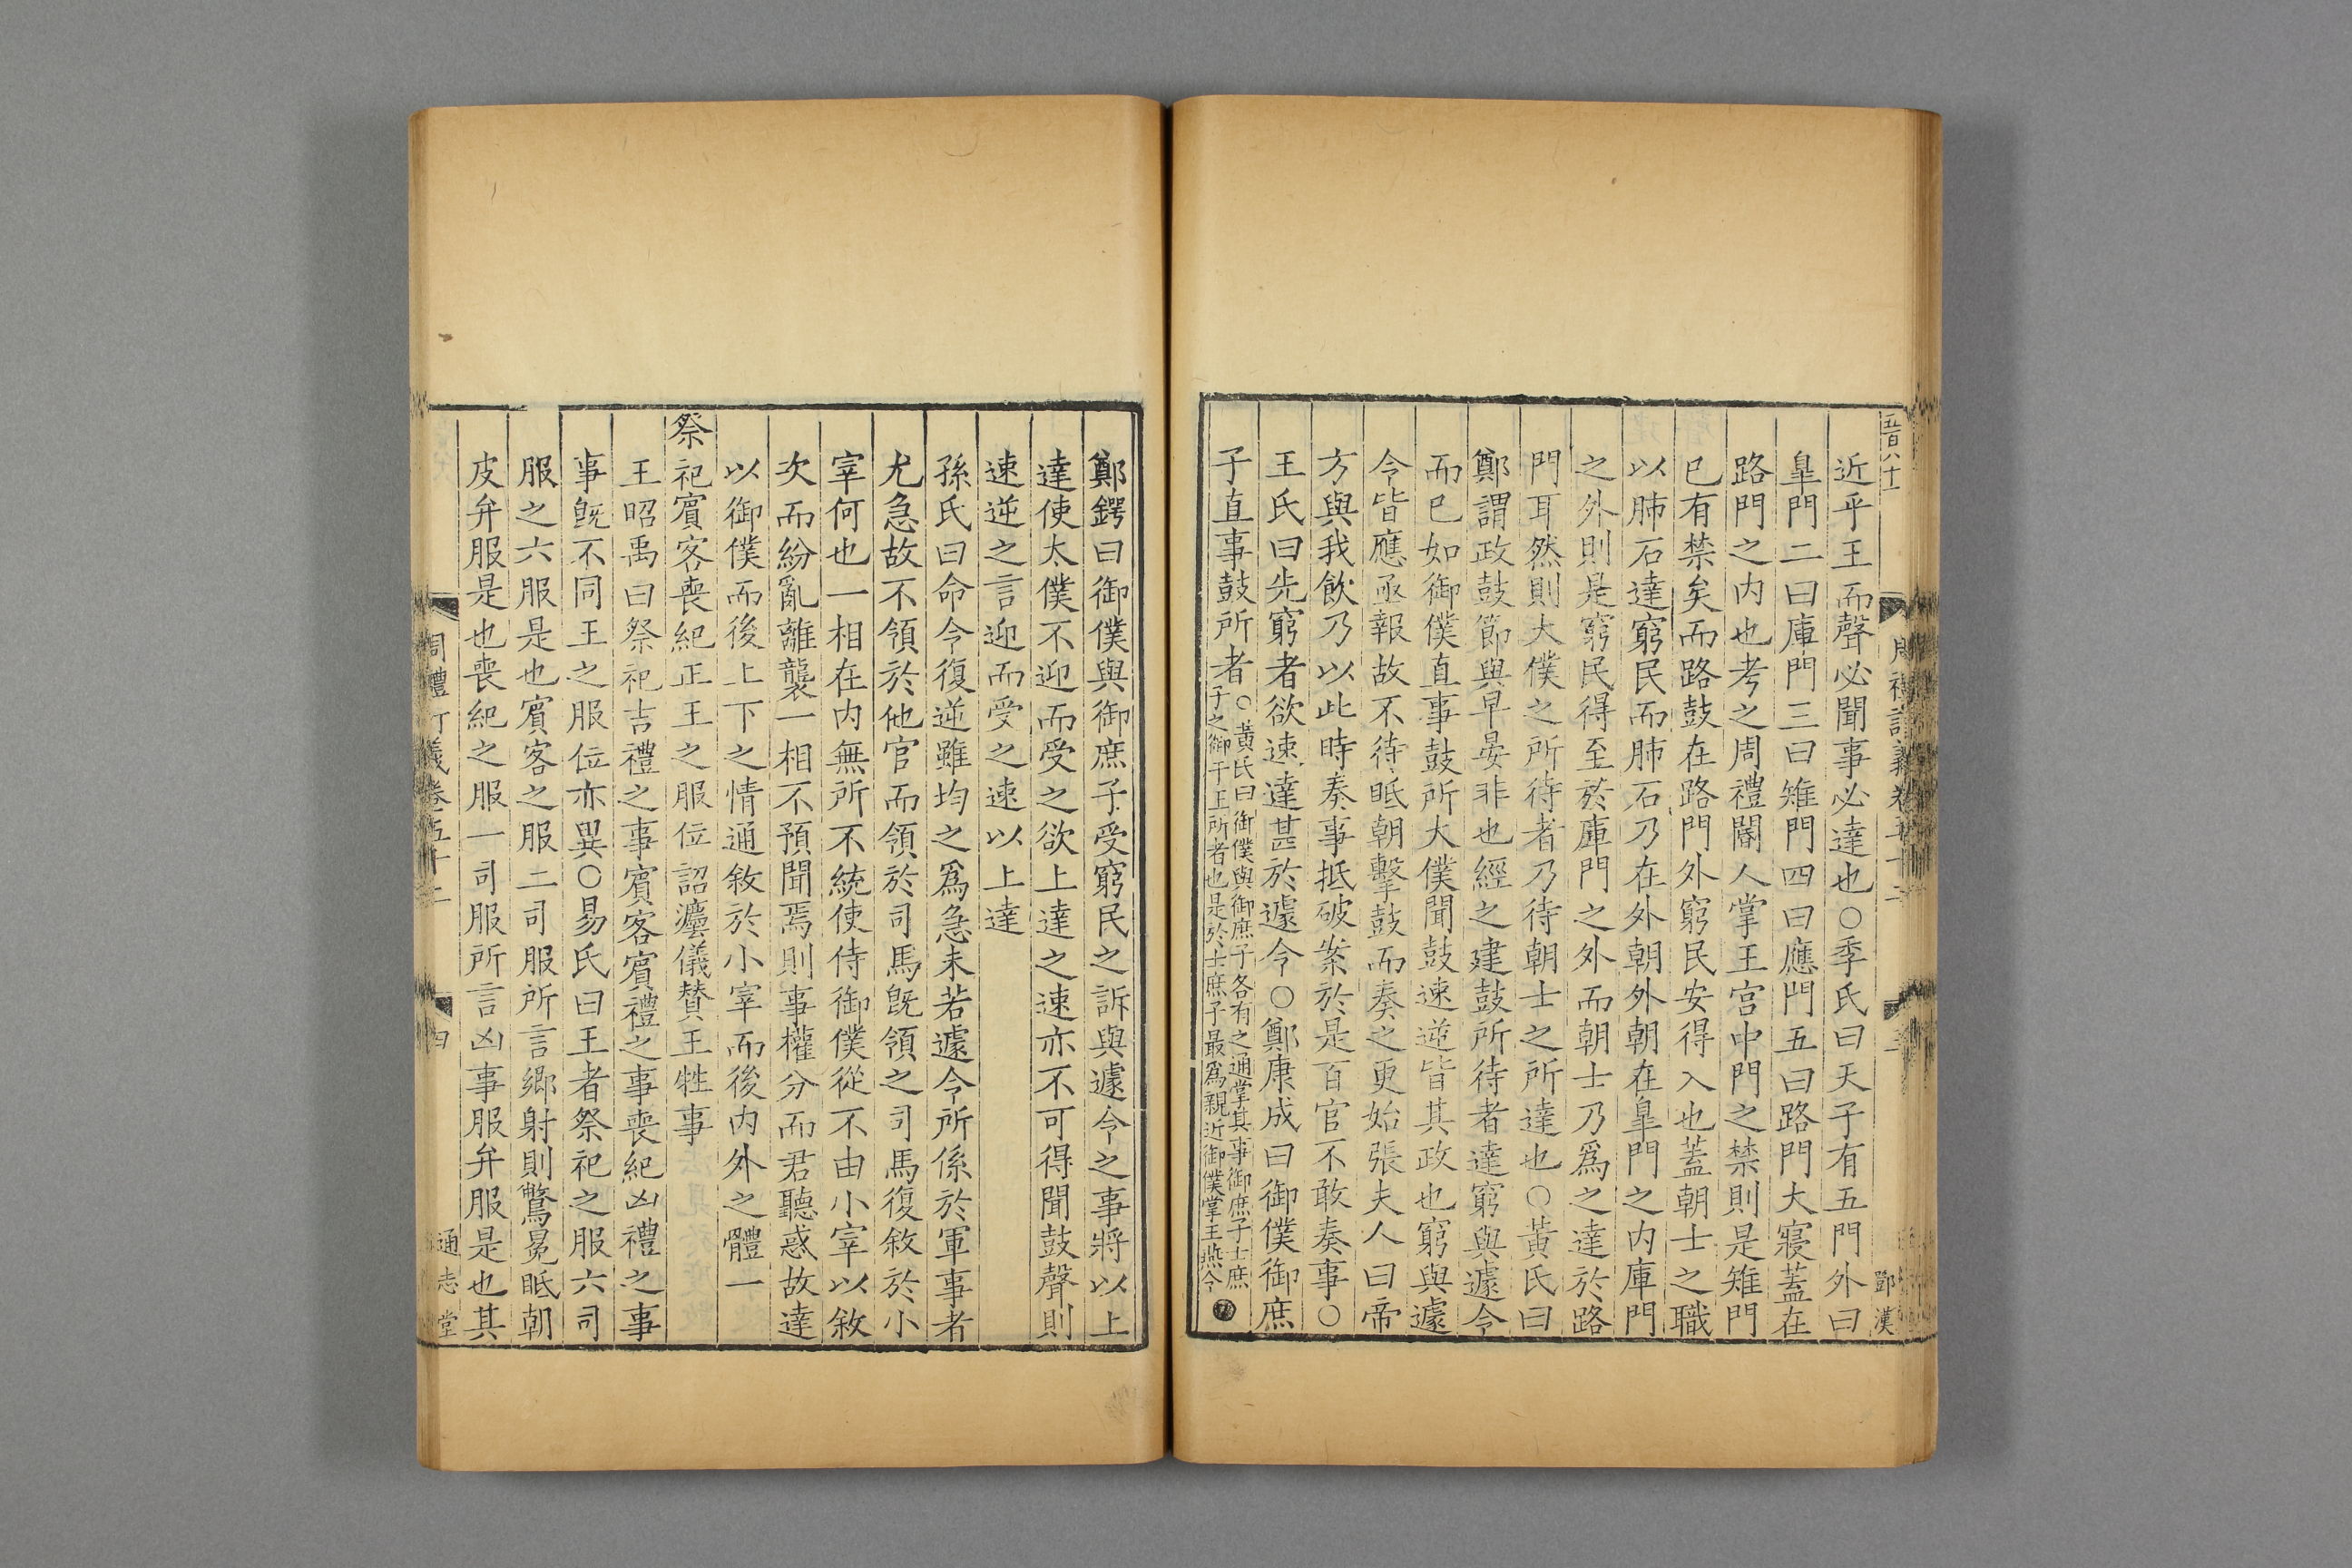 五百八十一
鄧漢
近乎王而聲必聞事必達也○季氏曰天子有五門外曰
皐門二曰庫門三曰雉門四曰應門五曰路門大寢蓋在
路門之内也考之周禮閽人掌王宫中門之禁則是雉門
已有禁矣而路鼓在路門外窮民安得入也蓋朝士之職
以肺石達窮民而肺石乃在外朝外朝在皐門之内庫門
之外則是窮民得至於庫門之外而朝士乃爲之達於路
門耳然則大僕之所待者乃待朝士之所達也○黄氏曰
鄭謂政鼓節與早晏非也經之建鼓所待者達窮與遽令
而已如御僕直事鼓所大僕聞鼓速逆皆其政也窮與遽
令皆應亟報故不待眡朝擊鼓而奏之更始張夫人曰帝
方與我飲乃以此時奏事抵破案於是百官不敢奏事○
王氏曰先窮者欲速達甚於遽令○鄭康成曰御僕御庶
子直事鼓所者
○黄氏曰御僕與御庶子各有之通掌其事御庶子士庶
子之御于王所者也是於士庶子最爲親近御僕掌王燕令
鄭鍔曰御僕與御庶子受窮民之訴與遽令之事將以上
達使太僕不迎而受之欲上達之速亦不可得聞鼓聲則
速逆之言迎而受之速以上達
孫氏曰命令復逆雖均之爲急未若遽令所係於軍事者
尤急故不領於他官而領於司馬旣領之司馬復敘於小
宰何也一相在内無所不統使侍御僕從不由小宰以敘
次而紛亂離襲一相不預聞焉則事權分而君聽惑故達
以御僕而後上下之情通敘於小宰而後内外之體一
祭祀賓客喪紀正王之服位詔灋儀贊王牲事
王昭禹曰祭祀吉禮之事賓客賓禮之事喪紀凶禮之事
事旣不同王之服位亦異○易氏曰王者祭祀之服六司
服之六服是也賓客之服二司服所言鄉射則鷩冕眡朝
皮弁服是也喪紀之服一司服所言凶事服弁服是也其
周禮訂義卷五十二
四
通志堂